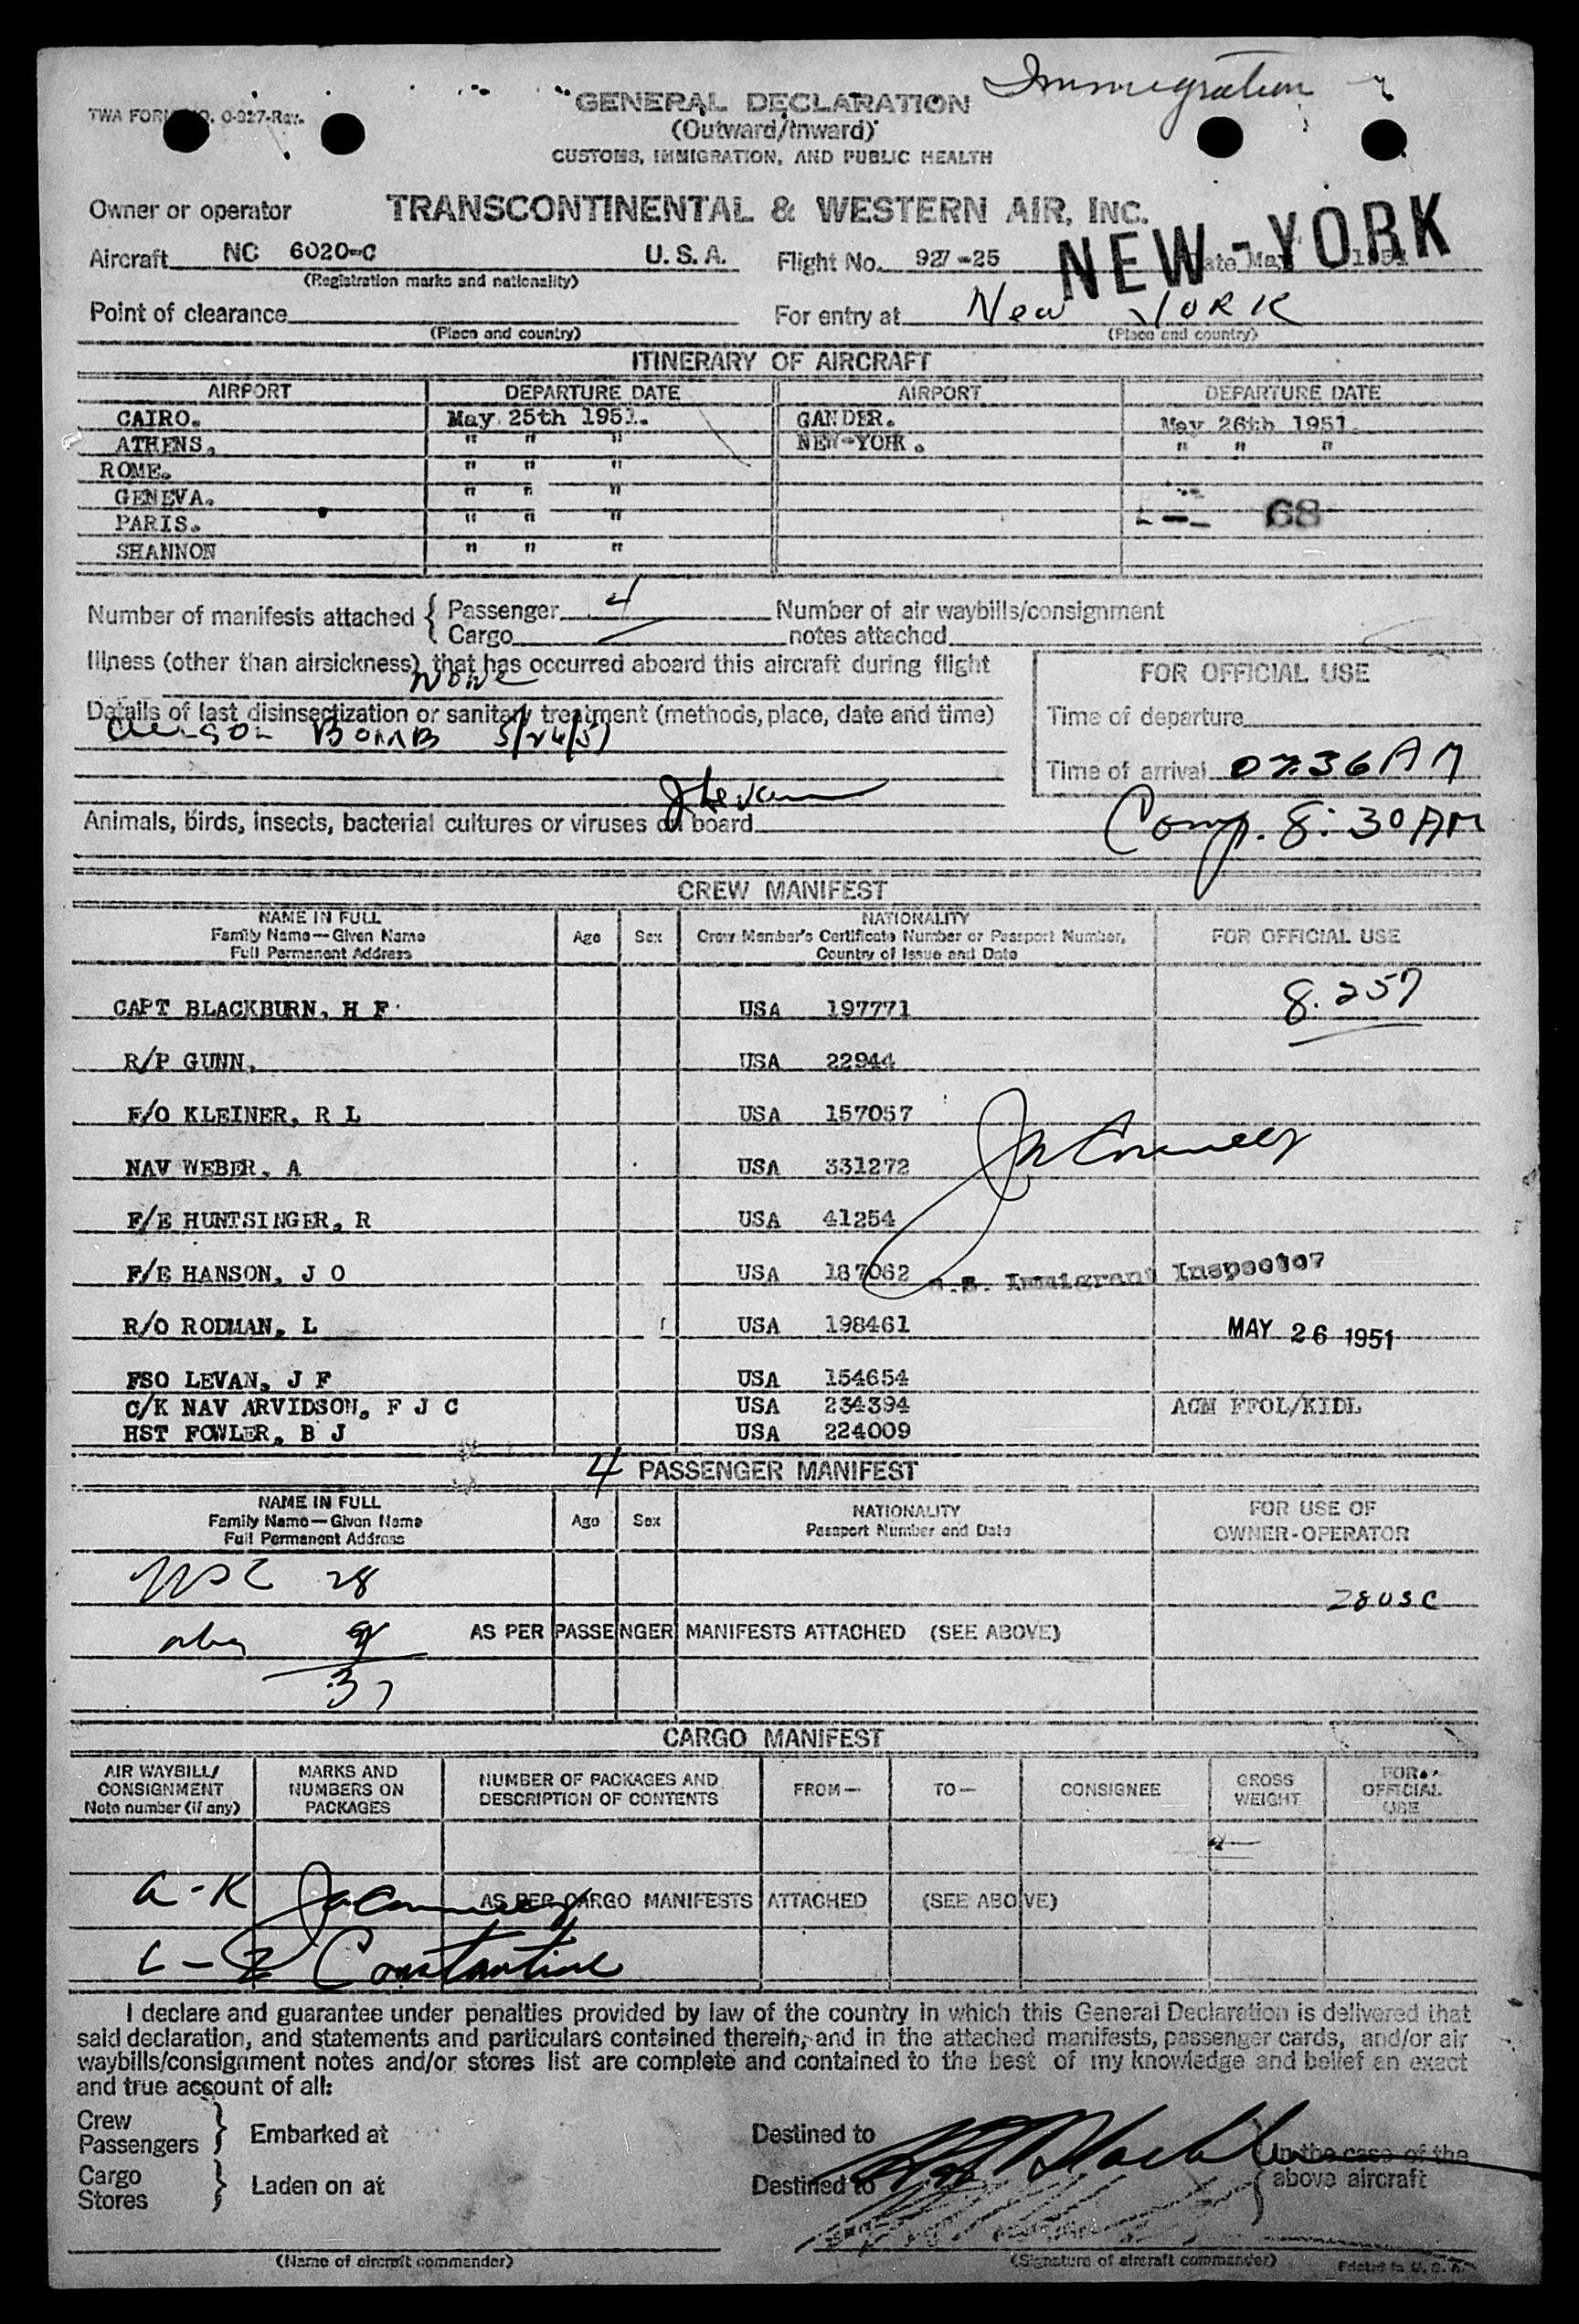 Immigration
TWA FORM NO. O-927-Rev.
GENERAL DECLARATION
(Outward/Inward)
CUSTOMS, IMMIGRATION, AND PUBLIC HEALTH
Owner or operator TRANSCONTINENTAL & WESTERN AIR, INC.
NEW-YORK
Aircraft NC 6020-C U.S.A. Flight No. 927-25 Date May 1951
(Registration marks and nationality)
Point of clearance For entry at New YORK
(Place and country) (Place and country)
ITINERARY OF AIRCRAFT
AIRPORT DEPARTURE DATE AIRPORT DEPARTURE DATE
CAIRO. May 25th 1951. GANDER. May 26th 1951.
ATHENS. " " " NEW-YORK. " " "
ROME. " " "
GENEVA. " " "
PARIS. " " " 68
SHANNON " " "
Number of manifests attached { Passenger 4 Number of air waybills/consignment
Cargo — notes attached
Illness (other than airsickness) that has occurred aboard this aircraft during flight
None
FOR OFFICIAL USE
Details of last disinsectization or sanitary treatment (methods, place, date and time)
BOMB 5/26/51
Time of departure
Time of arrival 07:36 AM
J Levan
Animals, birds, insects, bacterial cultures or viruses on board
Comp. 8:30 AM
CREW MANIFEST
NAME IN FULL
Family Name—Given Name
Full Permanent Address
Age Sex
NATIONALITY
Crew Member's Certificate Number or Passport Number,
Country of Issue and Date
FOR OFFICIAL USE
8.257
CAPT BLACKBURN, H F USA 197771
R/P GUNN, USA 22944
F/O KLEINER, R L USA 157057
NAV WEBER, A USA 331272
F/E HUNTSINGER, R USA 41254
F/E HANSON, J O USA 187062
U.S. Immigrant Inspector
R/O RODMAN, L USA 198461 MAY 26 1951
FSO LEVAN, J F USA 154654
C/K NAV ARVIDSON, F J C USA 234394 ACM FFOL/KIDL
HST FOWLER, B J USA 224009
4 PASSENGER MANIFEST
NAME IN FULL
Family Name—Given Name
Full Permanent Address
Age Sex
NATIONALITY
Passport Number and Date
FOR USE OF
OWNER-OPERATOR
USC 28
28 USC
9 AS PER PASSENGER MANIFESTS ATTACHED (SEE ABOVE)
37
CARGO MANIFEST
AIR WAYBILL/
CONSIGNMENT
Note number (if any)
MARKS AND
NUMBERS ON
PACKAGES
NUMBER OF PACKAGES AND
DESCRIPTION OF CONTENTS
FROM— TO— CONSIGNEE
GROSS
WEIGHT
FOR
OFFICIAL
USE
A-K AS PER CARGO MANIFESTS ATTACHED (SEE ABOVE)
L-Z Constantine
I declare and guarantee under penalties provided by law of the country in which this General Declaration is delivered that
said declaration, and statements and particulars contained therein, and in the attached manifests, passenger cards, and/or air
waybills/consignment notes and/or stores list are complete and contained to the best of my knowledge and belief an exact
and true account of all:
Crew
Passengers } Embarked at Destined to
Cargo
Stores } Laden on at Destined to
} in the case of the
above aircraft
(Name of aircraft commander) (Signature of aircraft commander) Printed in U. S. A.